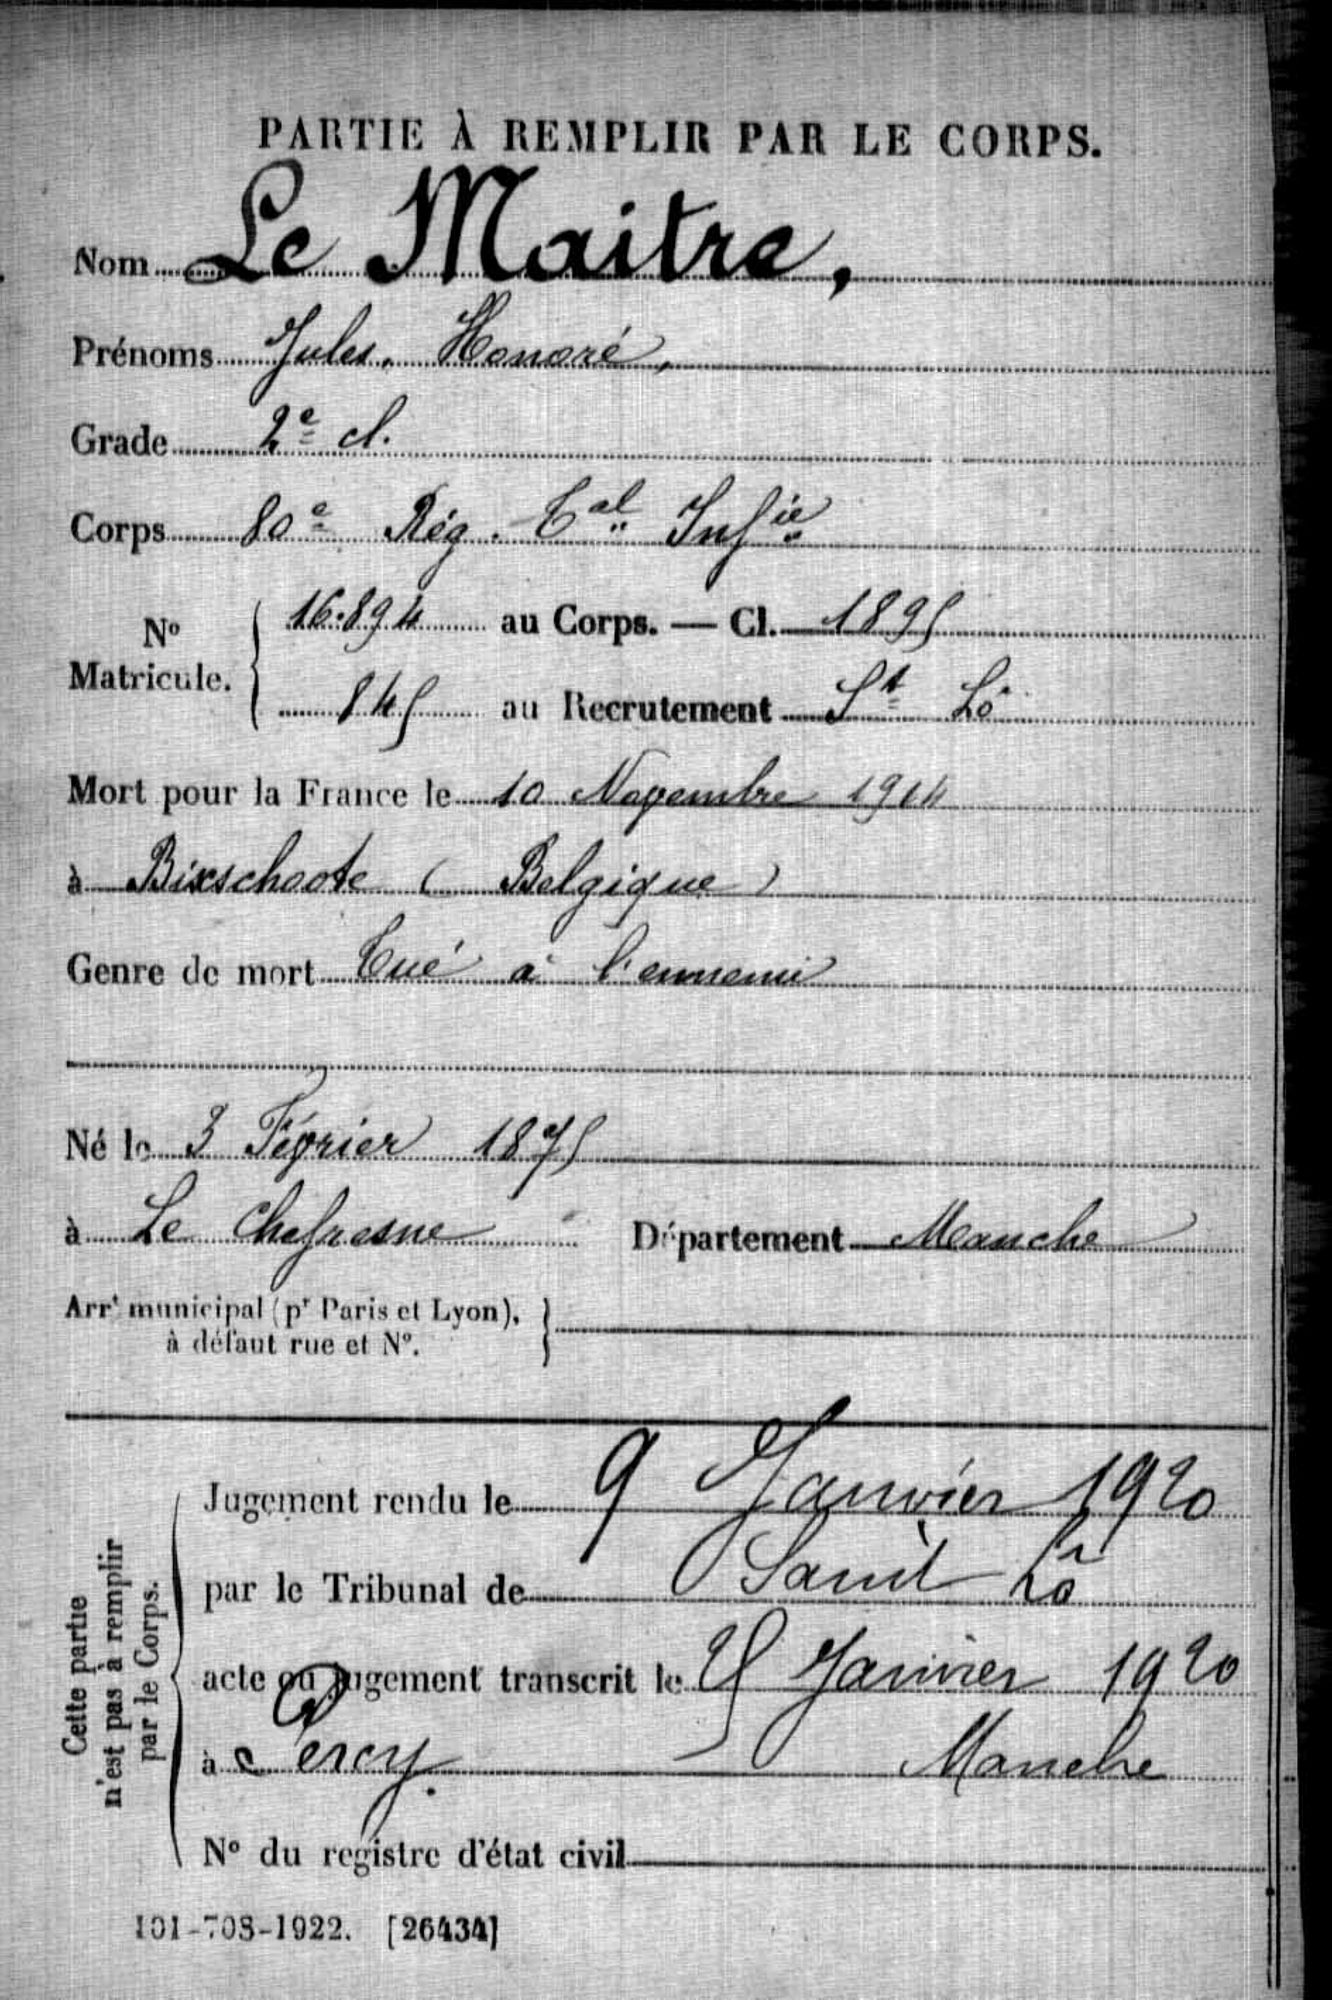 PARTIE À REMPLIR PAR LE CORPS.
Nom Le Maitre,
Prénoms Jules, Honoré,
Grade 2e cl.
Corps 80e Rég. Tal Infie
No Matricule. { 16.894 au Corps. — Cl. 1895
845 au Recrutement St Lô
Mort pour la France le 10 Novembre 1914
à Bixschoote (Belgique)
Genre de mort Tué à l'ennemi
Né le 3 Février 1875
à Le Chefresne Département Manche
Arrt municipal (pr Paris et Lyon),
à défaut rue et No. }
Cette partie
n'est pas à remplir
par le Corps.
Jugement rendu le 9 Janvier 1920
par le Tribunal de Saint Lô
acte ou jugement transcrit le 25 Janvier 1920
à Percy. Manche
No du registre d'état civil
101-708-1922. [26434]